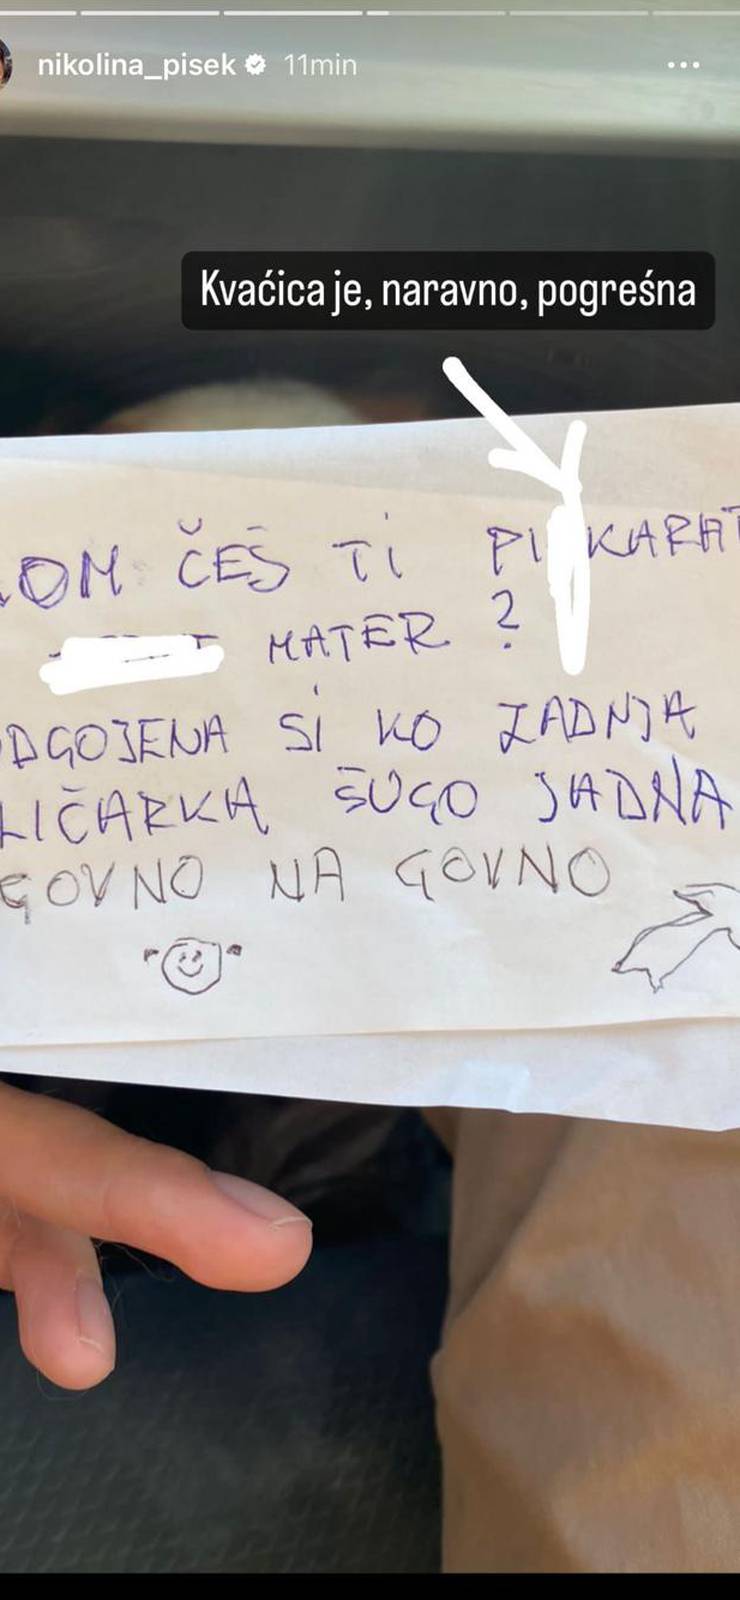 nikolina_pisek 11min
Kvaćica je, naravno, pogreśna
OM ČEŠ TI PI KARAT
MATER ?
DGOJENA SI KO ZADNJA
LIČARKA ŠUGO JADNA
GOVNO NA GOVNO